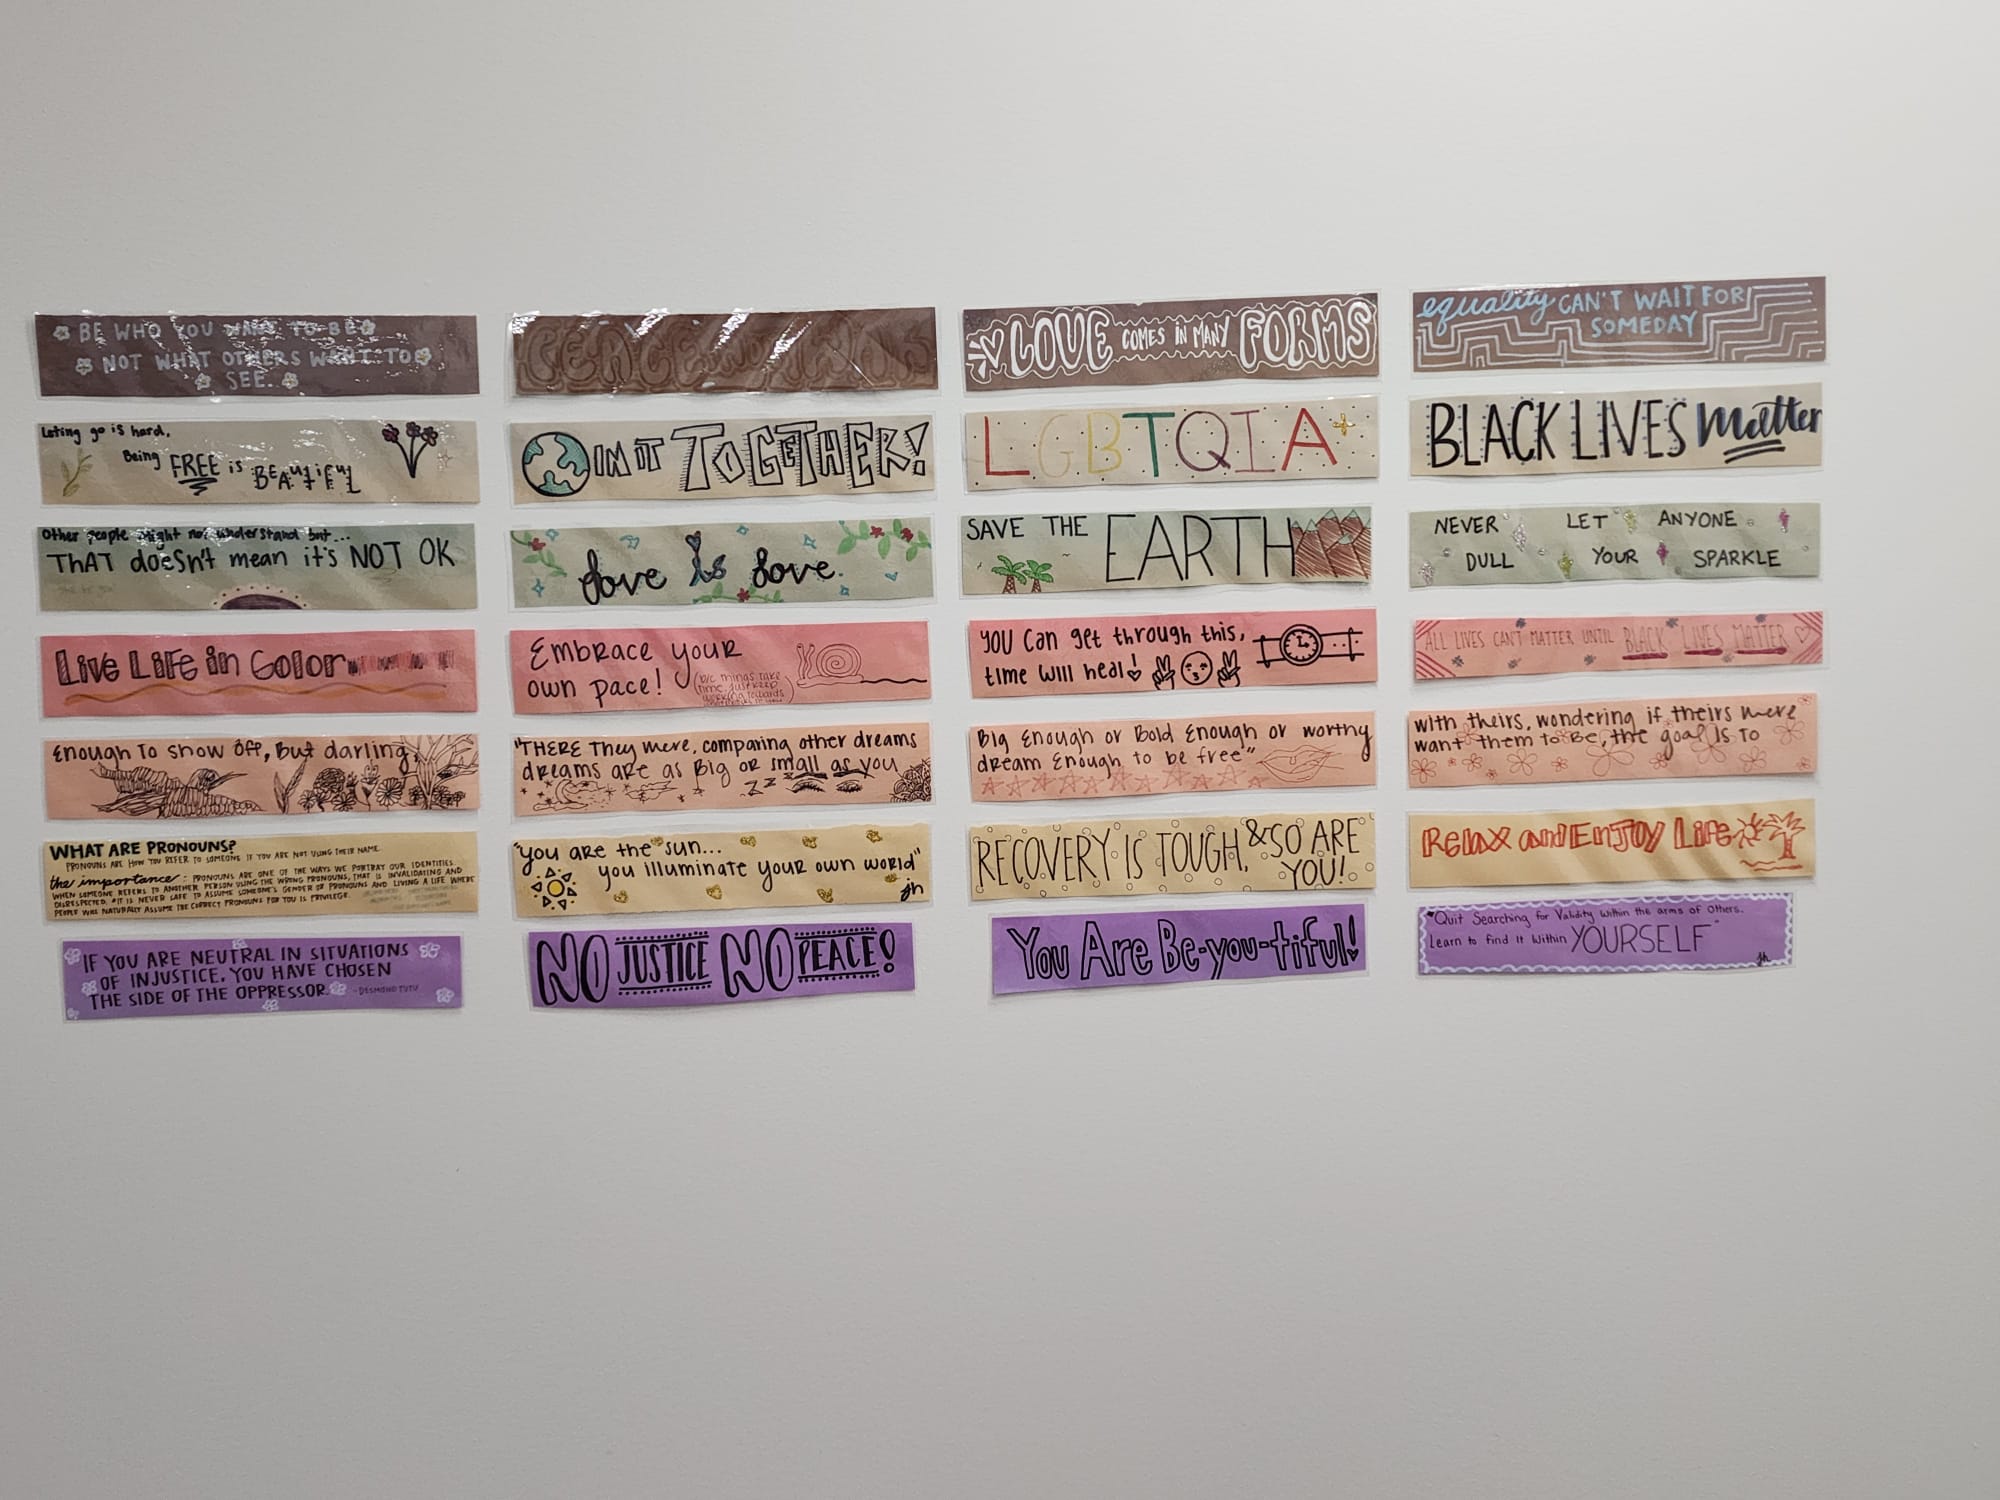 BE WHO YOU WANT TO BE
NOT WHAT OTHERS WANT TO
SEE.
PEACE
LOVE COMES IN MANY FORMS
equality CAN'T WAIT FOR
SOMEDAY
Leting go is hard,
Being FREE is BEAutifuL
IN IT TOGETHER!
LGBTQIA+
BLACK LIVES Matter
Other people might not understand but...
THAT doesn't mean it's NOT OK
love is love.
SAVE THE EARTH
NEVER LET ANYONE
DULL YOUR SPARKLE
Live Life in Color
Embrace your
own pace!
(b/c things take
time, just keep
working towards
You can get through this,
time will heal!
ALL LIVES CAN'T MATTER UNTIL BLACK LIVES MATTER
Enough to show off, But darling,
"THERE They were, comparing other dreams
dreams are as Big or small as you
Big Enough or Bold Enough or worthy
dream Enough to be free"
with theirs, wondering if theirs were
want them to be, the goal is to
WHAT ARE PRONOUNS?
PRONOUNS ARE HOW YOU REFER TO SOMEONE IF YOU ARE NOT USING THEIR NAME.
the importance: PRONOUNS ARE ONE OF THE WAYS WE PORTRAY OUR IDENTITIES.
WHEN SOMEONE REFERS TO ANOTHER PERSON USING THE WRONG PRONOUNS, THAT IS INVALIDATING AND
DISRESPECTED. #IT IS NEVER SAFE TO ASSUME SOMEONE'S GENDER OR PRONOUNS AND LIVING A LIFE WHERE
PEOPLE WILL NATURALLY ASSUME THE CORRECT PRONOUNS FOR YOU IS PRIVILEGE.
"you are the sun...
you illuminate your own world"
jh
RECOVERY IS TOUGH, & SO ARE
YOU!
Relax and Enjoy Life
IF YOU ARE NEUTRAL IN SITUATIONS
OF INJUSTICE, YOU HAVE CHOSEN
THE SIDE OF THE OPPRESSOR.
-DESMOND TUTU
NO JUSTICE NO PEACE!
You Are Be-you-tiful!
"Quit Searching for Validity within the arms of others.
Learn to find it within YOURSELF"
jh